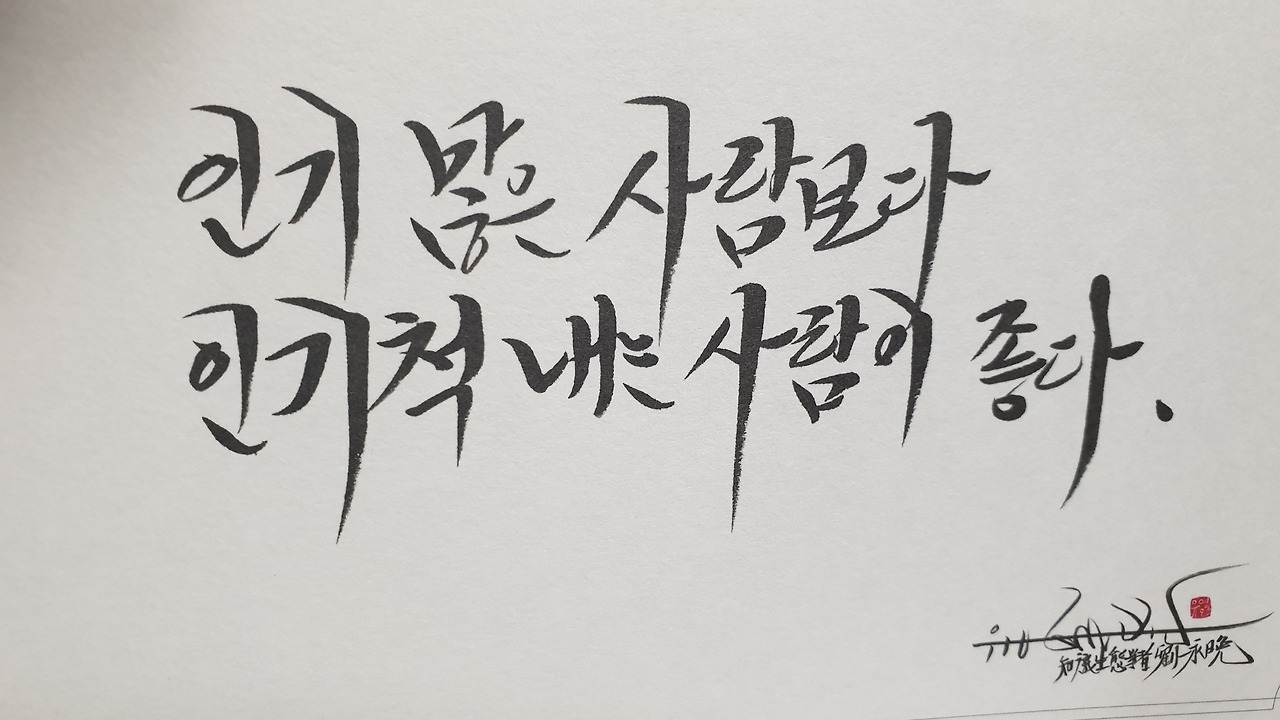 인기 많은 사람보다
인기척 내는 사람이 좋다.
知識生態學者 劉永晩